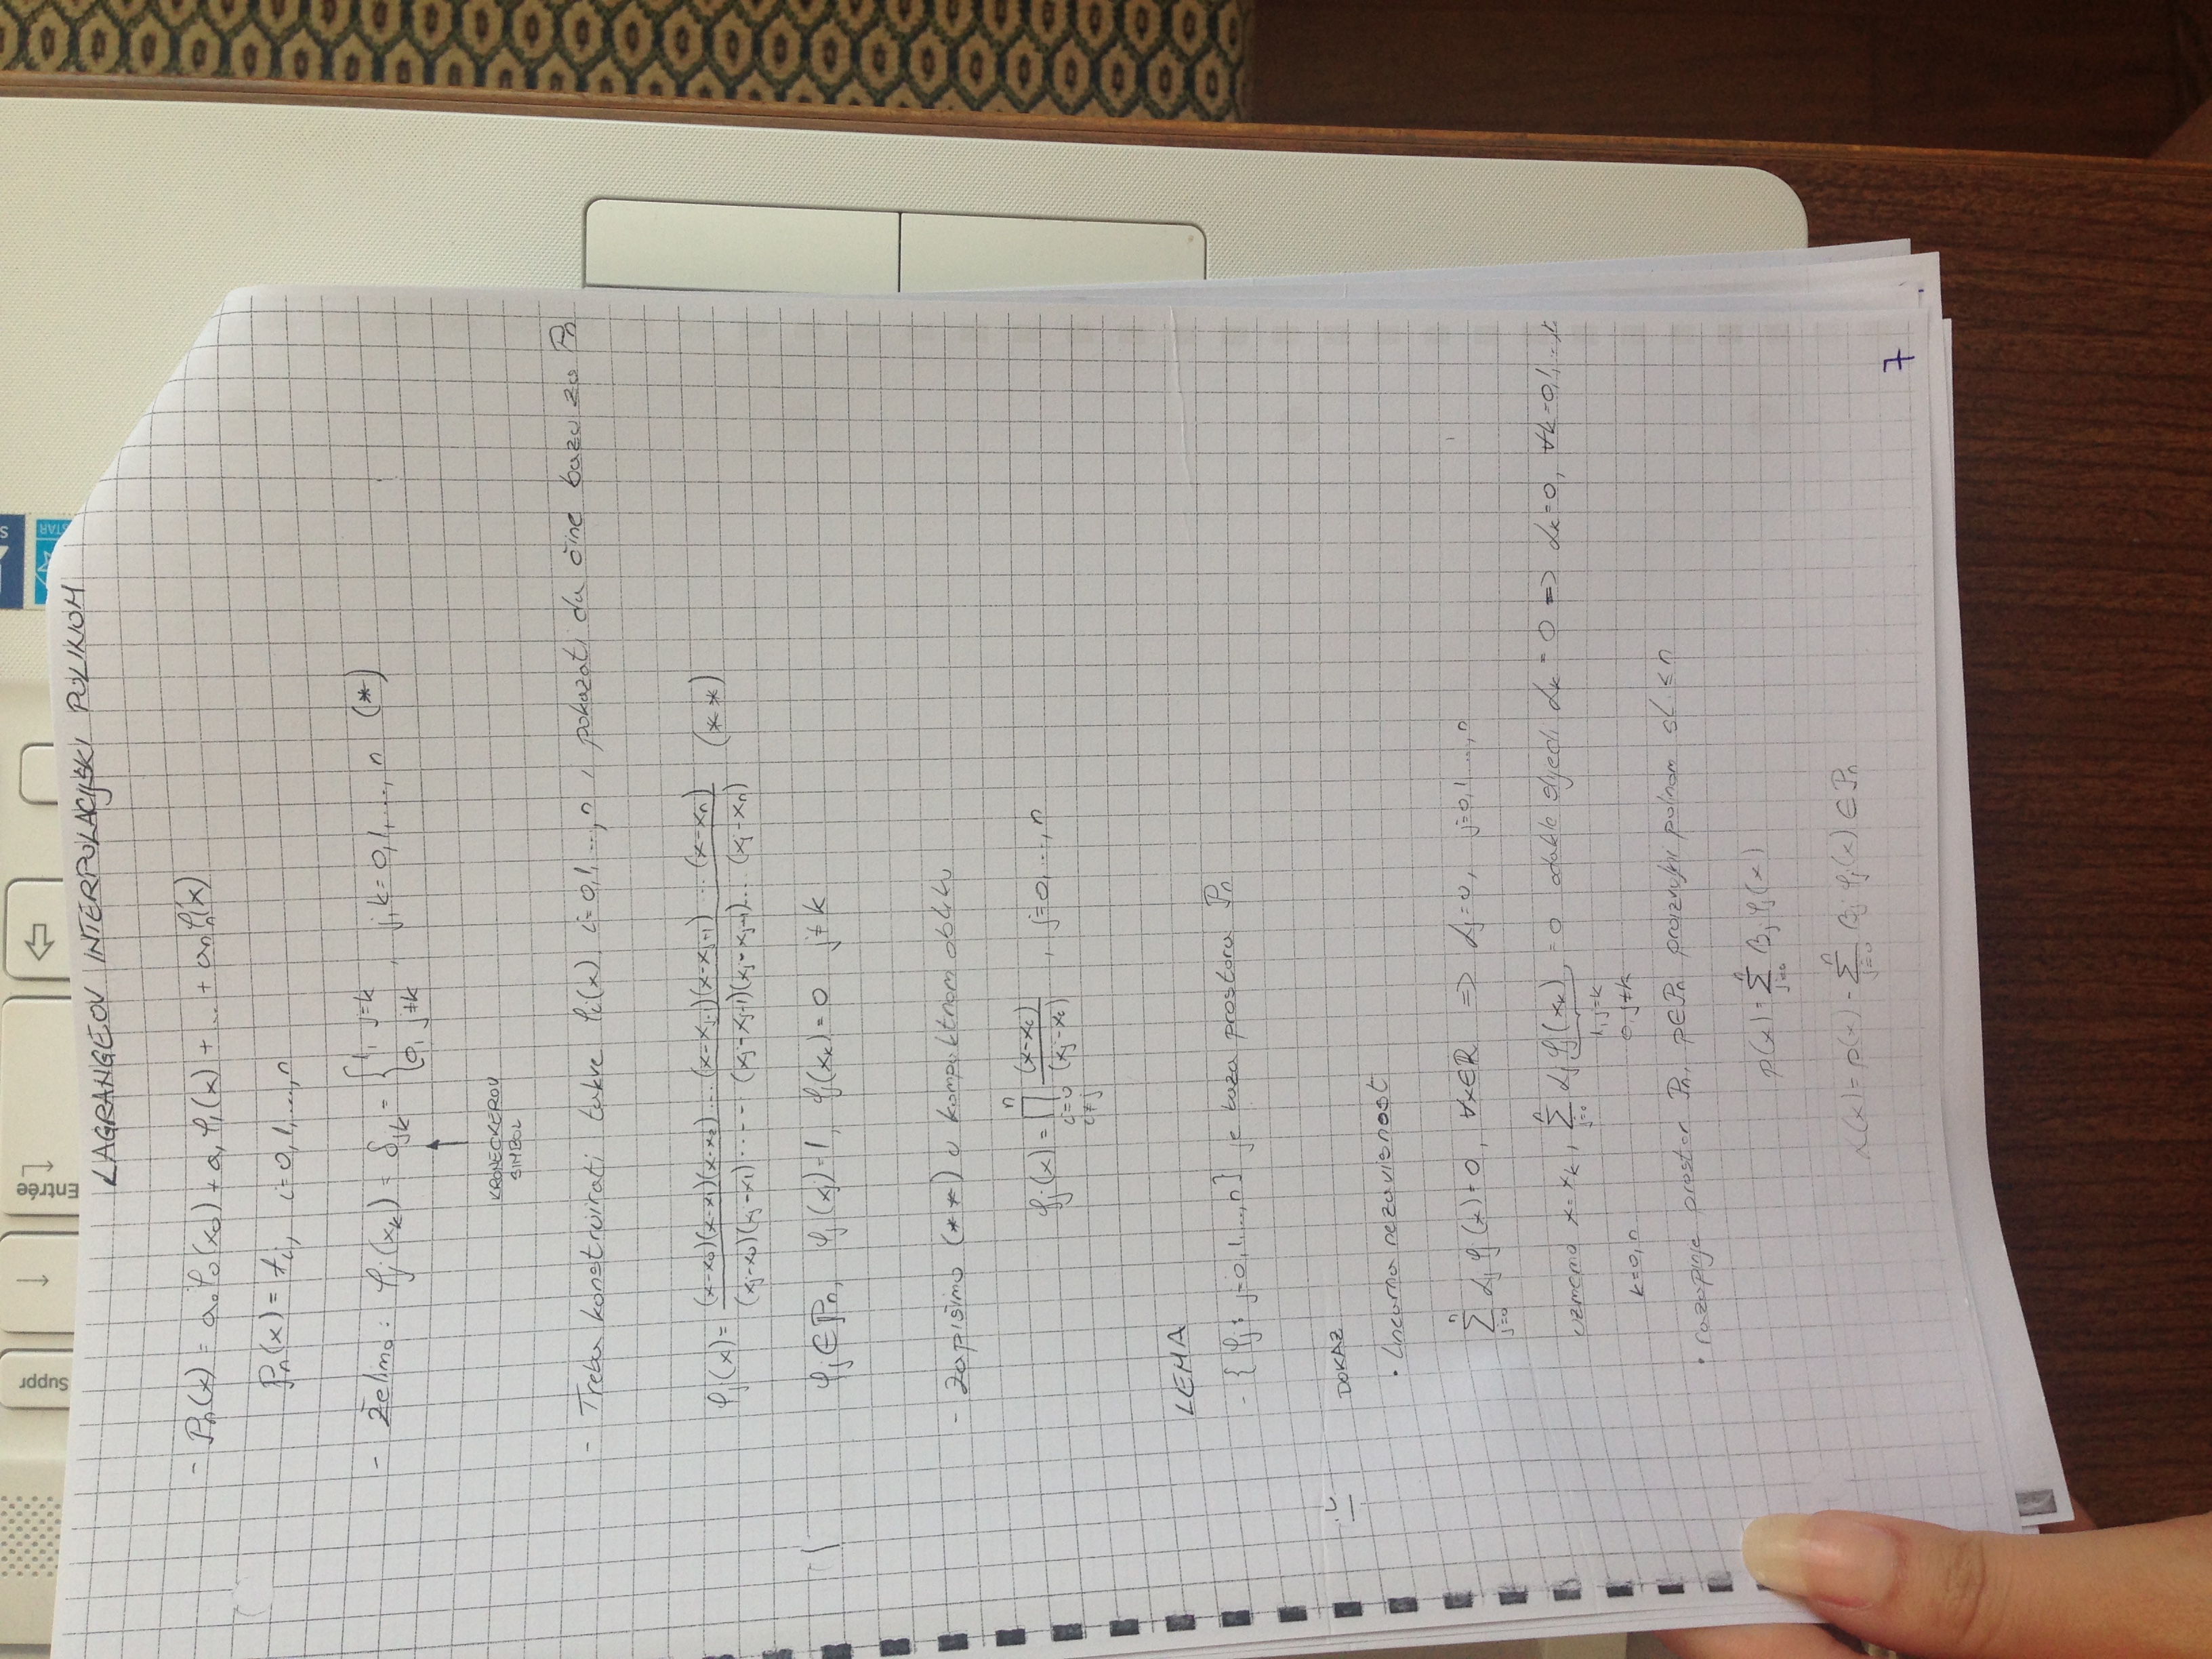 Suppr
↓
Entrée
STAR
LAGRANGEOV INTERPOLACIJSKI POLINOM
- Pn(x) = a₀φ₀(x₀) + a₁φ₁(x) + ... + anφn(x)
Pn(x) = fi, i=0,1,...,n
- Želimo: φj(xk) = δjk = { 1, j=k 0, j≠k , j,k=0,1,...,n (*)
↑
KRONECKEROV
SIMBOL
- Treba konstruirati takve φi(x), i=0,1,...,n i pokazati da čine bazu za Pn
φj(x) = (x-x₀)(x-x₁)(x-x₂)...(x-xj-1)(x-xj-1)...(x-xn) / (xj-x₀)(xj-x₁)......(xj-xj-1)(xj-xj-1)...(xj-xn) (**)
φj∈Pn, φj(xj)=1, φj(xk)=0 j≠k
- Zapišimo (**) u kompaktnom obliku
φj(x) = ∏ⁿ i=0 i≠j (x-xi)/(xj-xi) , j=0,...,n
LEMA
- {φj: j=0,1,...,n} je baza prostora Pn
DOKAZ
• Linearna nezavisnost
Σⁿ j=0 αj φj(x)=0, ∀x∈R => αj=0, j=0,1,...,n
uzmemo x=xk, Σⁿ j=0 αj φj(xk) = 0 odakle slijedi αk=0 => αk=0, ∀k=0,1,...,n
1, j=k
k=0,n 0, j≠k
• razapinje prostor Pn, p∈Pn proizvoljni polinom st. ≤ n
p(x) = Σⁿ j=0 βj φj(x)
α(x) = p(x) - Σⁿ j=0 βj φj(x) ∈ Pn
7